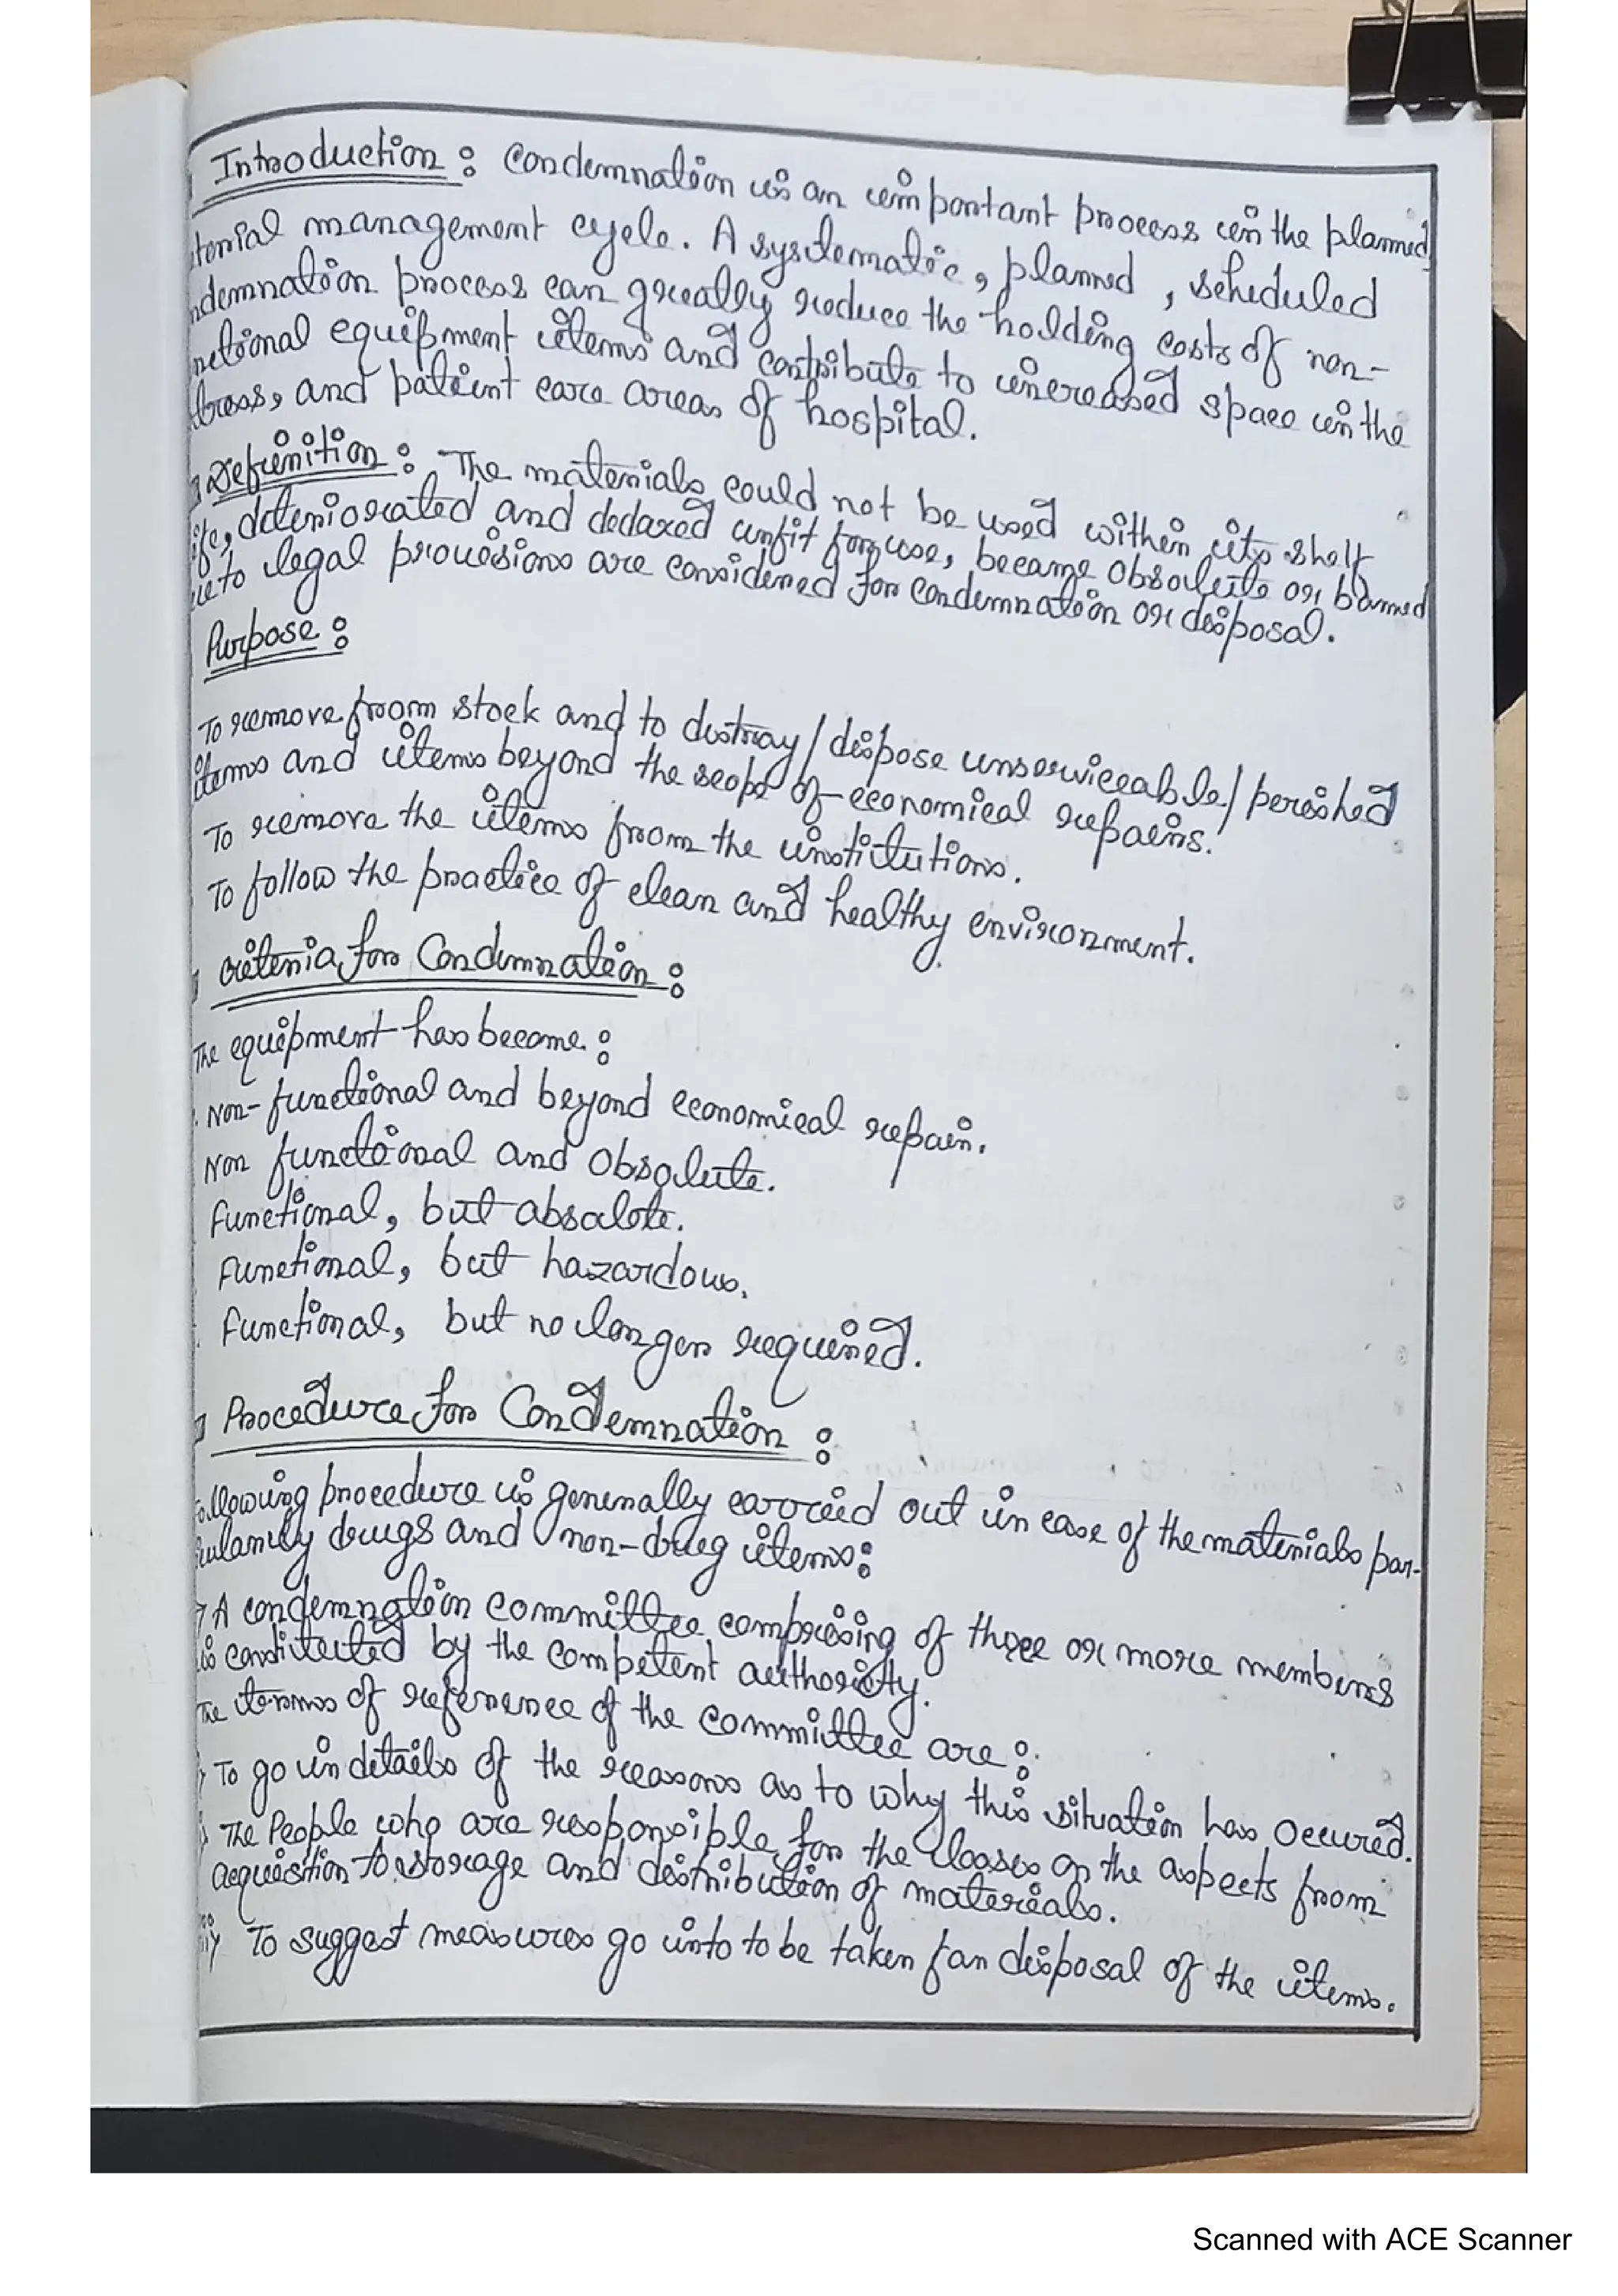 Introduction : Condemnation is an important process in the planned
terial management cycle. A systematic, planned, scheduled
ndemnation process can greatly reduce the holding costs of non-
nctional equipment items and contribute to increased space in the
and patient care areas of hospital.
Definition : The materials could not be used within its shelf
ife, deteriorated and declared unfit for use, became obsolute or banned
ue to legal provisions are considered for condemnation or disposal.
Purpose :
To remove from stock and to destroy/dispose unserviceable/perished
items and items beyond the scope of economical repairs.
To remove the items from the institutions.
To follow the practice of clean and healthy environment.
Criteria for Condemnation :
The equipment has become :
Non-functional and beyond economical repair.
Non functional and obsolute.
Functional, but absalote.
Functional, but hazardous.
Functional, but no longer required.
Procedure for Condemnation :
ollowing procedure is generally carried out in case of the materials par-
culamily drugs and non-drug items:
A condemnation committee comprising of three or more members
is constituted by the competent authority.
The terms of reference of the committee are :
To go in details of the reasons as to why this situation has occured.
The People who are responsible for the losses on the aspects from
acquisition to storage and distribution of materials.
To suggest measures go into to be taken fan disposal of the items.
Scanned with ACE Scanner